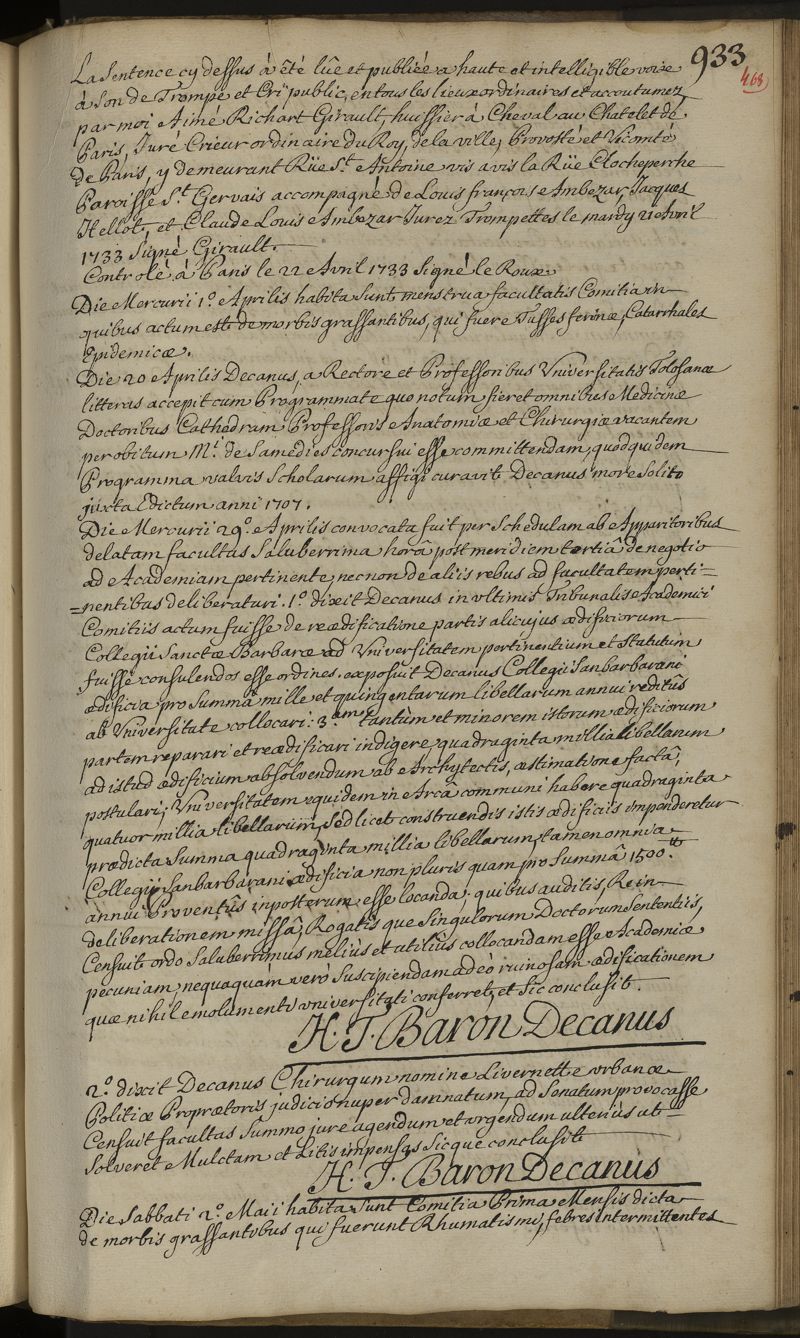 933
468
La Sentence cy dessus à été lûe et publiée a haute et intelligible voix
à Son de Trompe et Cri public, en tous les lieux ordinaires et accoutumez
par moi Aimé Richart Girault, huissier à Cheval au Chatelet de
Paris, Juré Crieur ordinaire du Roy, de la ville, Provosté et Vicomté
de Paris, y demeurant Rüe St. Antoine vis a vis la Rüe Clocheperche
Paroisse St. Gervais accompagné de Louis françois Ambezar, Jacques
Hellot, et Claude Louis Ambezar Jurez Trompettes le mardy 21 Avril
1733 Signé Girault.
Controlé à Paris le 22 Avril 1733 Signé le Roux
Die Mercurii 1.º Aprilis habita Sunt menstrua facultatis Comitia in
quibus actum est de morbis grassantibus, qui fuere Tusses ferinæ, Catarrhales
Epidemicæ.
Die 20 Aprilis Decanus, a Rectore et Professoribus Vniversitatis Tolosanæ
litteras accepit cum Programmate quo notum fieret omnibus Medicinæ
Doctoribus Cathedram Professoris Anatomiæ et Chirurgiæ vacantem
per obitum M.i de Samedies concursui esse committendam, quod quidem
Programma valvis Scholarum affigi curavit Decanus more Solito
juxta Edictum anni 1707.
Die Mercurii 29.º Aprilis convocata fuit per Schedulam ab Apparitoribus
delatam facultas Saluberrima horâ post meridiem tertiâ de negotio
ad Academiam pertinente, necnon de aliis rebus ad facultatem perti=
=nentibus deliberatura. 1.º dixit Decanus in vltimis Tribunalis Academici
Comitiis actum fuisse de reædificatione partis alicujus ædificiorum
Collegii Sanctæ Barbaræ ad Vniversitatem pertinentium et Statutum
fuisse consulendos esse ordines. exposuit Decanus Collegii Sanbarbarani
ædificia pro Summâ mille et quingentarum libellarum annui reditûs
ab Vniversitate collocari: 3.am tantùm et minorem istorum ædificiorum
partem reparari et reædificari indigere, quadraginta millia libellarum
ad istud ædificium absolvendum ab Architectis, æstimatione factâ,
postulari; Vniversitatem equidem in Arca communi habere quadraginta
quatuor millia libellarum, Sed licet construendis istis ædificiis impenderetur
prædicta Summa quadraginta millia libellarum, tamen omnia
Collegii Sanbarbarani ædificia non pluris quam pro Summâ 1500.tt
annui Proventûs inposterum esse locanda; quibus auditis, Re in
deliberationem missâ, Rogatis que Singulorum Doctorum Sententiis,
Censuit ordo Saluberrimus meliùs et utiliùs collocandam esse Academiæ
pecuniam, nequaquàm verò Suscipiendam adeò ruinosam ædificationem
quæ nihil emolumenti vniversitati conferret, et Sic conclusit.
H. T. Baron Decanus
2.º dixit Decanus Chirurgum nomine Livernette vrbanæ
Politiæ Proprætoris judicio nuper damnatum, ad Senatum provocasse
Censuit facultas Summo jure agendum et vrgendum ulteriùs uti
Solveret Mulctam et Litis impensas Sicque conclusit
H. T. Baron Decanus
Die Sabbati 2.º Maii habita Sunt Comitia Prima Mensis dicta
de morbis grassantibus qui fuerunt Rhumatismi, febres intermittentes